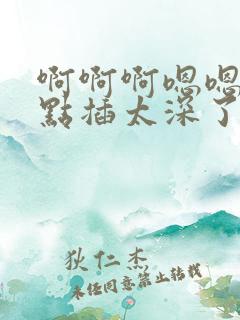 啊啊啊嗯嗯
點插太深了
狄仁杰
未经同意禁止转载